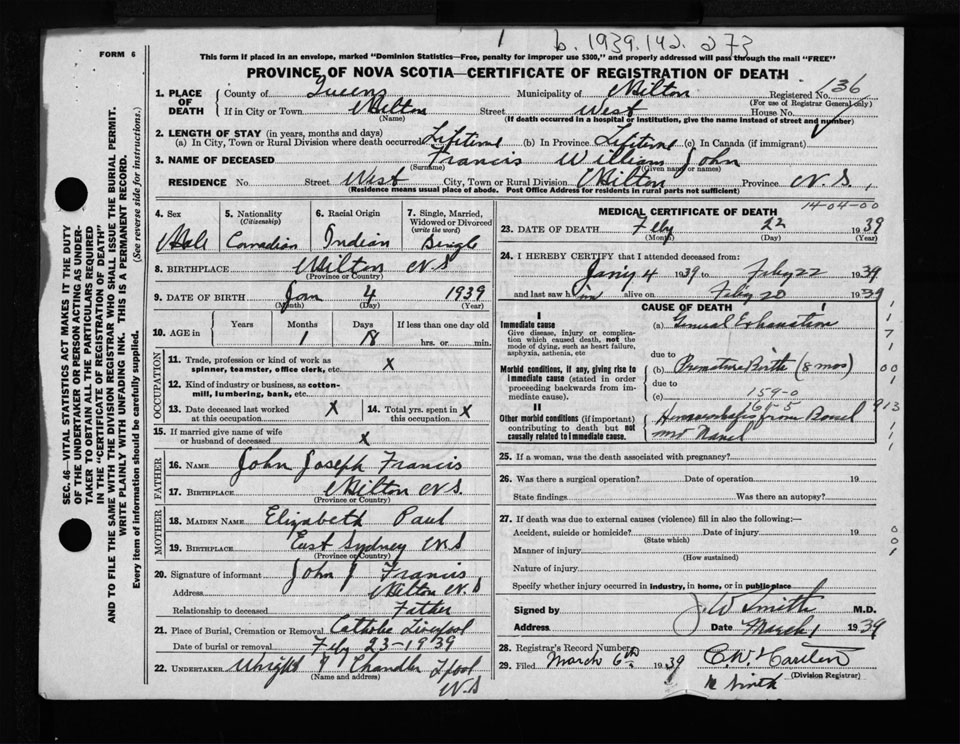 b. 1939. 142. 273
FORM 6
This form if placed in an envelope, marked "Dominion Statistics—Free, penalty for improper use $300," and properly addressed will pass through the mail "FREE"
PROVINCE OF NOVA SCOTIA—CERTIFICATE OF REGISTRATION OF DEATH
1. PLACE OF DEATH County of Queens Municipality of Milton Registered No. 136
(For use of Registrar General only)
If in City or Town Milton Street West House No.
(Name) (If death occurred in a hospital or institution, give the name instead of street and number)
2. LENGTH OF STAY (in years, months and days)
(a) In City, Town or Rural Division where death occurred Lifetime (b) In Province Lifetime (c) In Canada (if immigrant)
3. NAME OF DECEASED Francis William John
(Surname) (Given name or names)
RESIDENCE No. Street West City, Town or Rural Division Milton Province N.S.,
(Residence means usual place of abode. Post Office Address for residents in rural parts not sufficient)
SEC. 46 VITAL STATISTICS ACT MAKES IT THE DUTY
OF THE UNDERTAKER OR PERSON ACTING AS UNDER-
TAKER TO OBTAIN ALL THE PARTICULARS REQUIRED
IN THE "CERTIFICATE OF REGISTRATION OF DEATH"
AND TO FILE THE SAME WITH THE DIVISION REGISTRAR WHO SHALL ISSUE THE BURIAL PERMIT.
WRITE PLAINLY WITH UNFADING INK. THIS IS A PERMANENT RECORD.
Every item of information should be carefully supplied. (See reverse side for instructions.)
4. Sex 5. Nationality (Citizenship) 6. Racial Origin 7. Single, Married, Widowed or Divorced (write the word)
Male Canadian Indian Single
8. BIRTHPLACE Milton N S
(Province or Country)
9. DATE OF BIRTH Jan 4 1939
(Month) (Day) (Year)
10. AGE in Years Months Days If less than one day old
1 18 hrs. or min.
OCCUPATION
11. Trade, profession or kind of work as spinner, teamster, office clerk, etc. X
12. Kind of industry or business, as cotton-mill, lumbering, bank, etc.
13. Date deceased last worked at this occupation X 14. Total yrs. spent in this occupation X
15. If married give name of wife or husband of deceased X
FATHER
16. NAME John Joseph Francis
17. BIRTHPLACE Milton N.S.
(Province or Country)
MOTHER
18. MAIDEN NAME Elizabeth Paul
19. BIRTHPLACE East Sydney N.S
(Province or Country)
20. Signature of informant John J Francis
Address Milton N S
Relationship to deceased Father
21. Place of Burial, Cremation or Removal Catholic Liverpool
Date of burial or removal Feby 23-1939
22. UNDERTAKER Wright & Chandler Lpool
(Name and address) N S
MEDICAL CERTIFICATE OF DEATH
14-04-00
23. DATE OF DEATH Feby 22 1939
(Month) (Day) (Year)
24. I HEREBY CERTIFY that I attended deceased from:
Jany 4 1939 to Feby 22 1939
and last saw him alive on Feby 20 1939
CAUSE OF DEATH
I
Immediate cause
Give disease, injury or complication which caused death, not the mode of dying, such as heart failure, asphyxia, asthenia, etc
(a) General Exhaustion
due to
Morbid conditions, if any, giving rise to immediate cause (stated in order proceeding backwards from immediate cause).
(b) Premature Birth (8 mos)
due to
(c) 159-0
161-5
II
Other morbid conditions (if important) contributing to death but not causally related to immediate cause.
Hemorrhages from Bowel
and Navel
25. If a woman, was the death associated with pregnancy?
26. Was there a surgical operation? Date of operation 19
State findings Was there an autopsy?
27. If death was due to external causes (violence) fill in also the following:—
Accident, suicide or homicide? Date of injury 19
(State which)
Manner of injury
(How sustained)
Nature of injury
Specify whether injury occurred in industry, in home, or in public place
Signed by J. W Smith M.D.
Address Date March 1 1939
28. Registrar's Record Number
29. Filed March 6th 1939
(Division Registrar)